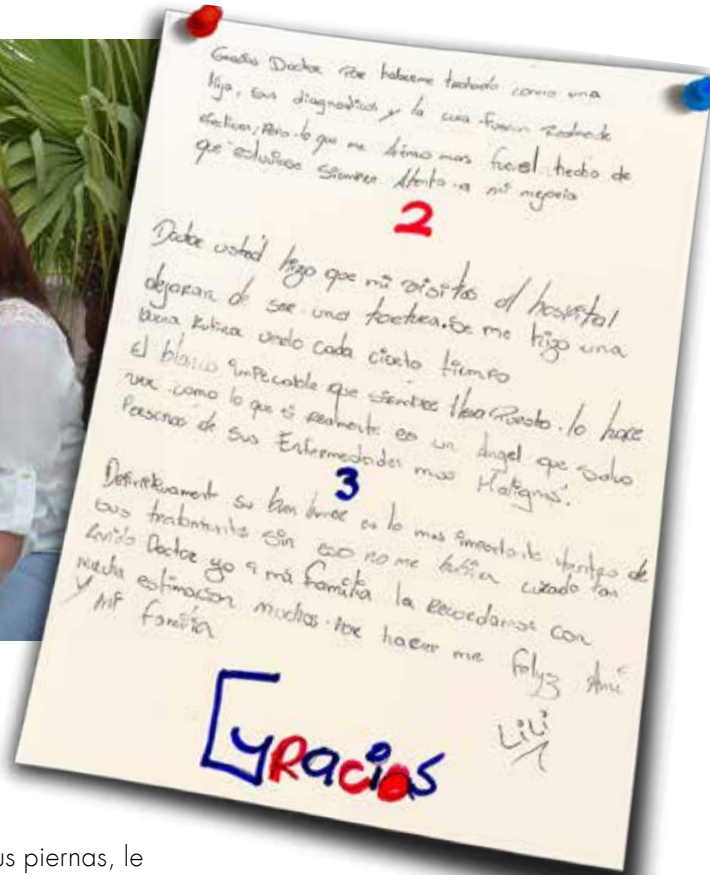 Gracias Doctor Por haberme tratado como una
hija, sus diagnosticos y la cura fueron Realmente
efectivos, Pero lo que me animo mas fue el hecho de
que estuviese siempre Atento a mi mejoria
2
Doctor usted hizo que mi visitas al hospital
dejaran de ser una tortura. Se me hizo una
buena Rutina verlo cada cierto tiempo
El blanco impecable que siempre lleva Puesto. lo hace
ver como lo que si realmente es un angel que salva
Personas de sus Enfermedades mas Malignas.
3
Definitivamente su buen humor es lo mas importante dentro de
sus tratamientos sin eso no me curado tan
Doctor yo mi familia la Recordamos con
mucha estimacion muchas Por hacer me felyz Ami
Y mi familia
Lili
Gracias
us piernas, le